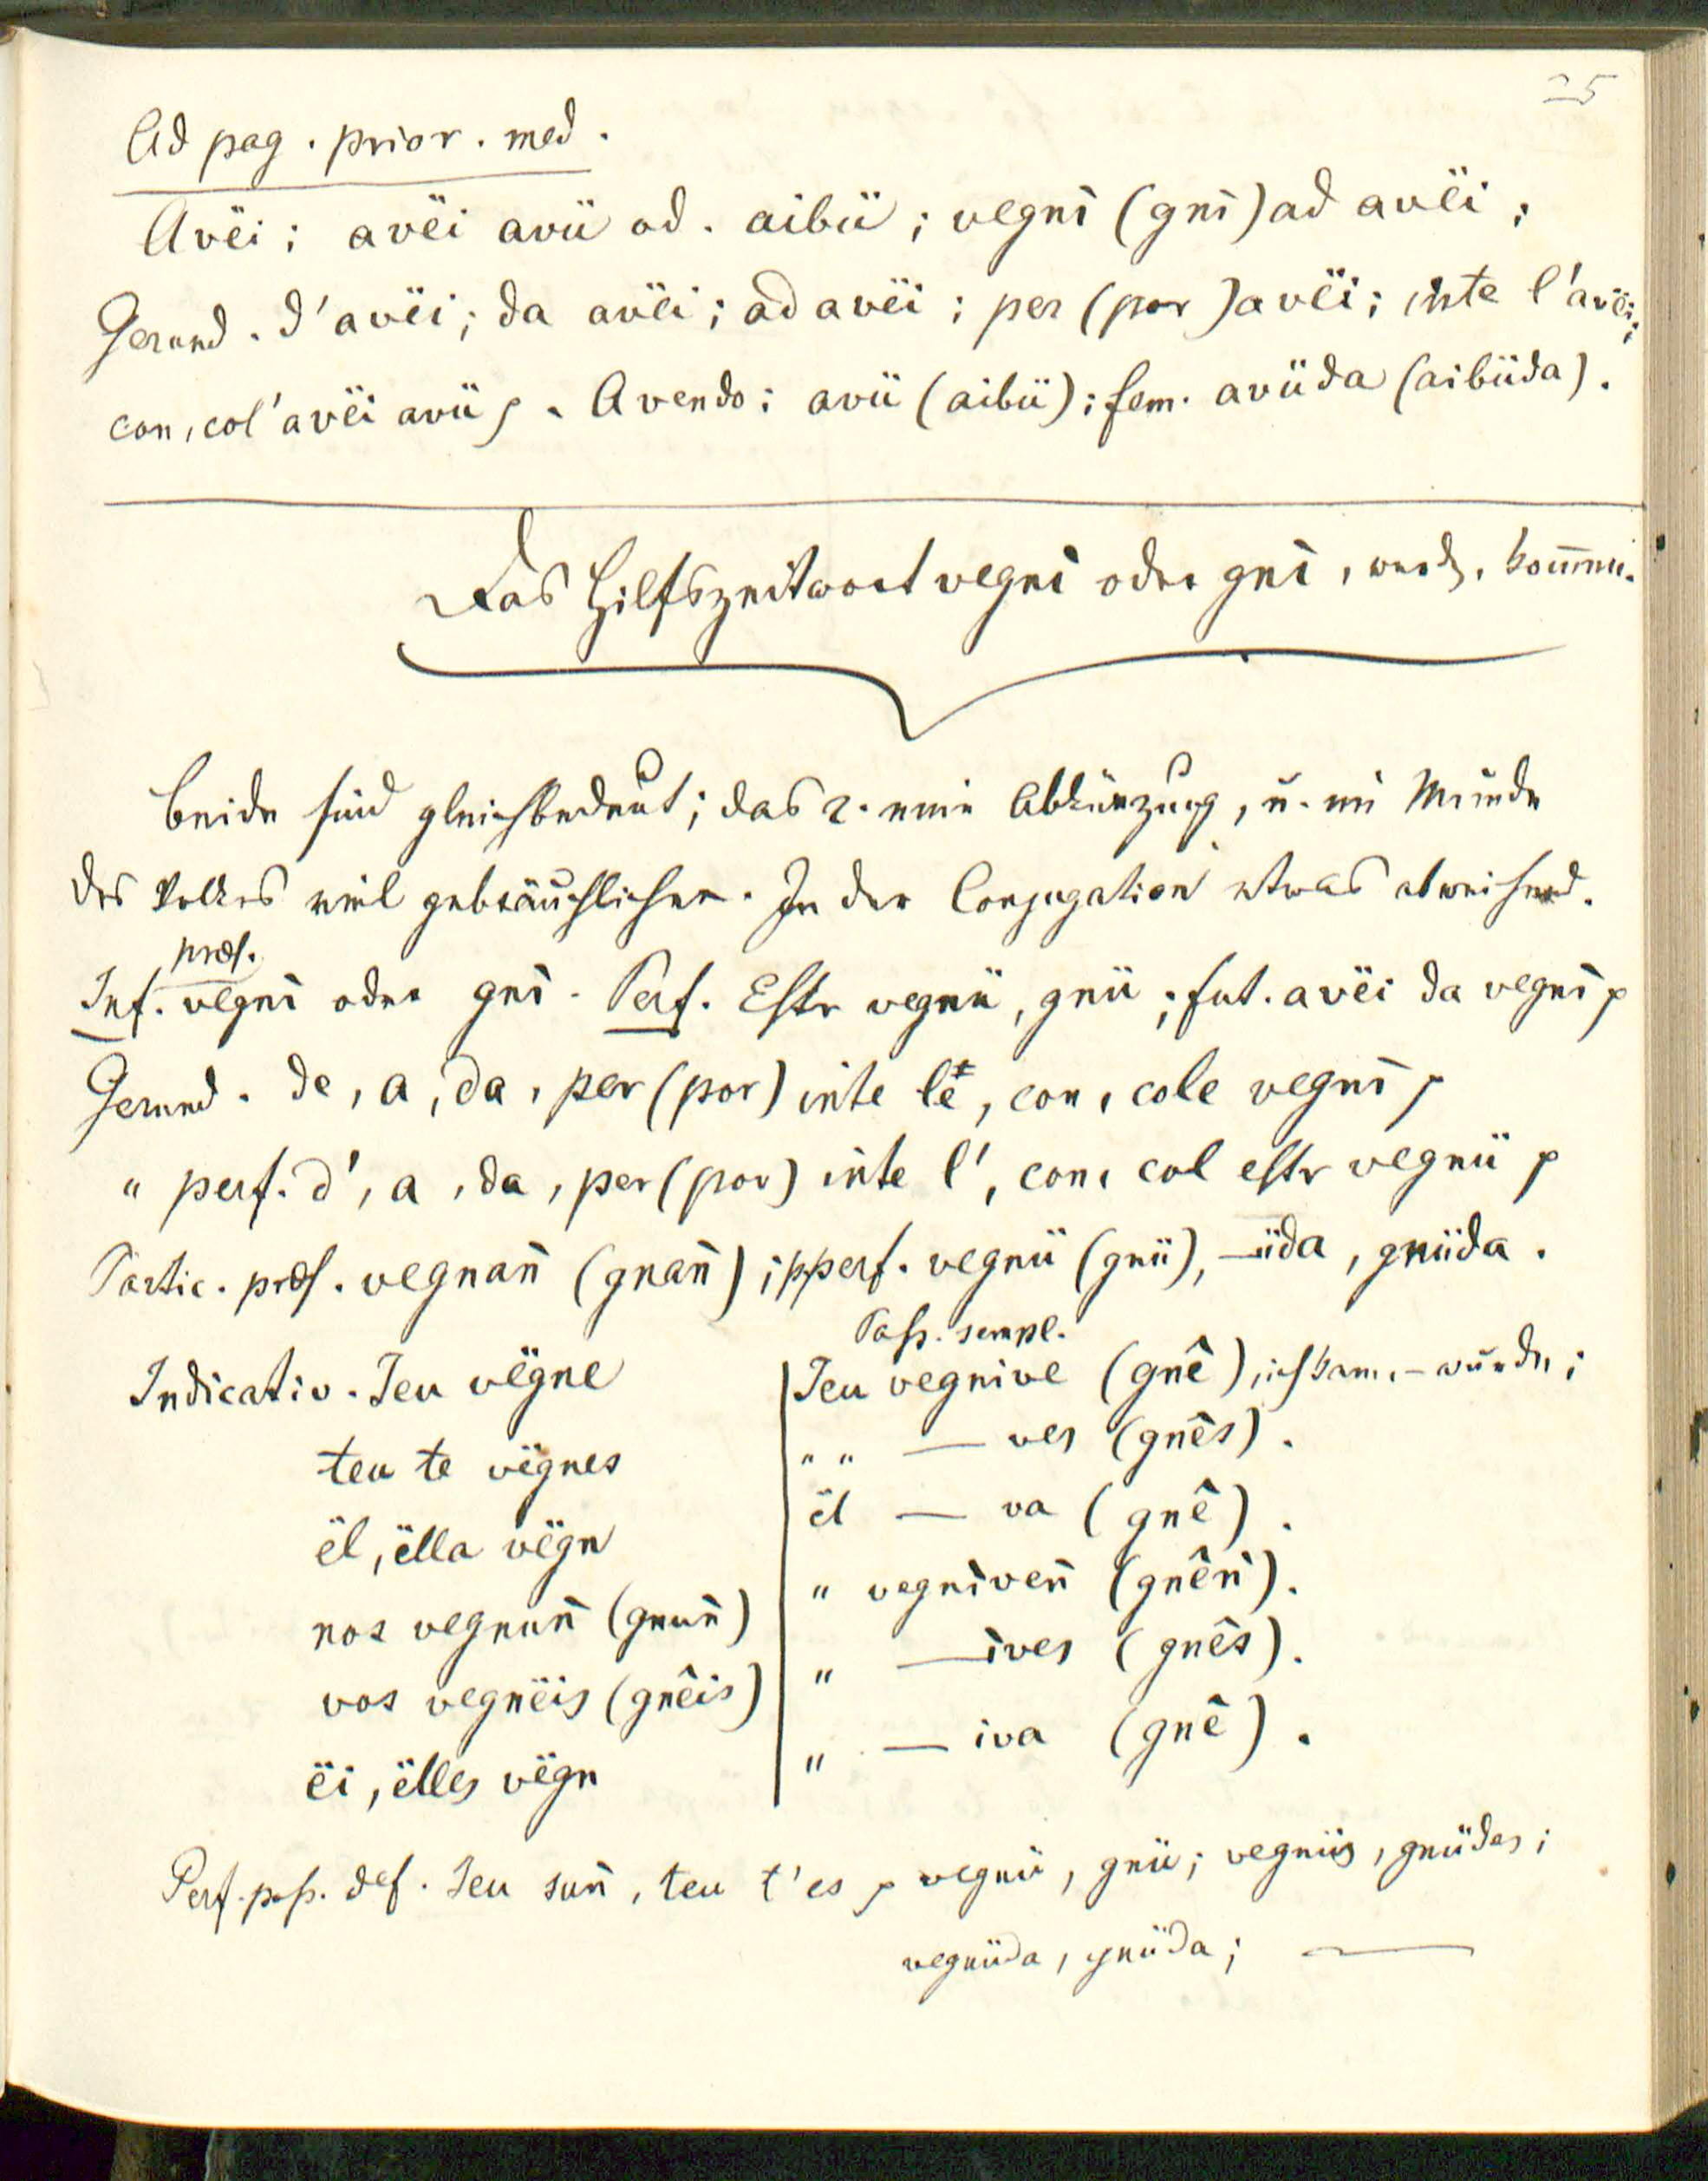 25
Ad pag. prior. med.
Avëi; avëi avü od. aibü; vegnì (gnì) ad avëi;
Gerund. d'avëi; da avëi; ad avëi; per (por) avëi; inte l'avëi;
con, col'avëi avü p. Avendo; avü (aibü); fem. avüda (aibüda).
Das Hilfszeitwort vegnì oder gnì, werd., kom̄en.
Beide sind gleichbedeut; das 2. eine Abkürzung, u. im Munde
des Volkes viel gebräuchlicher. In der Conjugation etwas abweichend.
præs.
Inf. vegnì oder gnì. Perf. Estr vegnü, gnü; fut. avëi da vegnì p
Gerund. de, a, da, per (por) inte le, con, cole vegnì p
" perf. d', a, da, per (por) inte l', con, col estr vegnü p
Partic. præs. vegnan̄ (gnan̄); pperf. vegnü (gnü), –üda, gnüda.
Indicativ. Ieu vëgne
teu te vëgnes
ël, ëlla vëgn
nos vegnun̄ (gnun̄)
vos vegnëis (gnêis)
ëi, ëlles vëgn
Pass. sempl.
Ieu vegnive (gnê), ich kam, – wurde;
" " — ves (gnês).
ël — va (gnê).
" vegnìven̄ (gnên̄).
" —ìves (gnês).
" — iva (gnê).
Perf. pass. def. Ieu sun̄, teu t'es p vegnü, gnü; vegnüs, gnüdes;
vegnüda, gnüda; —